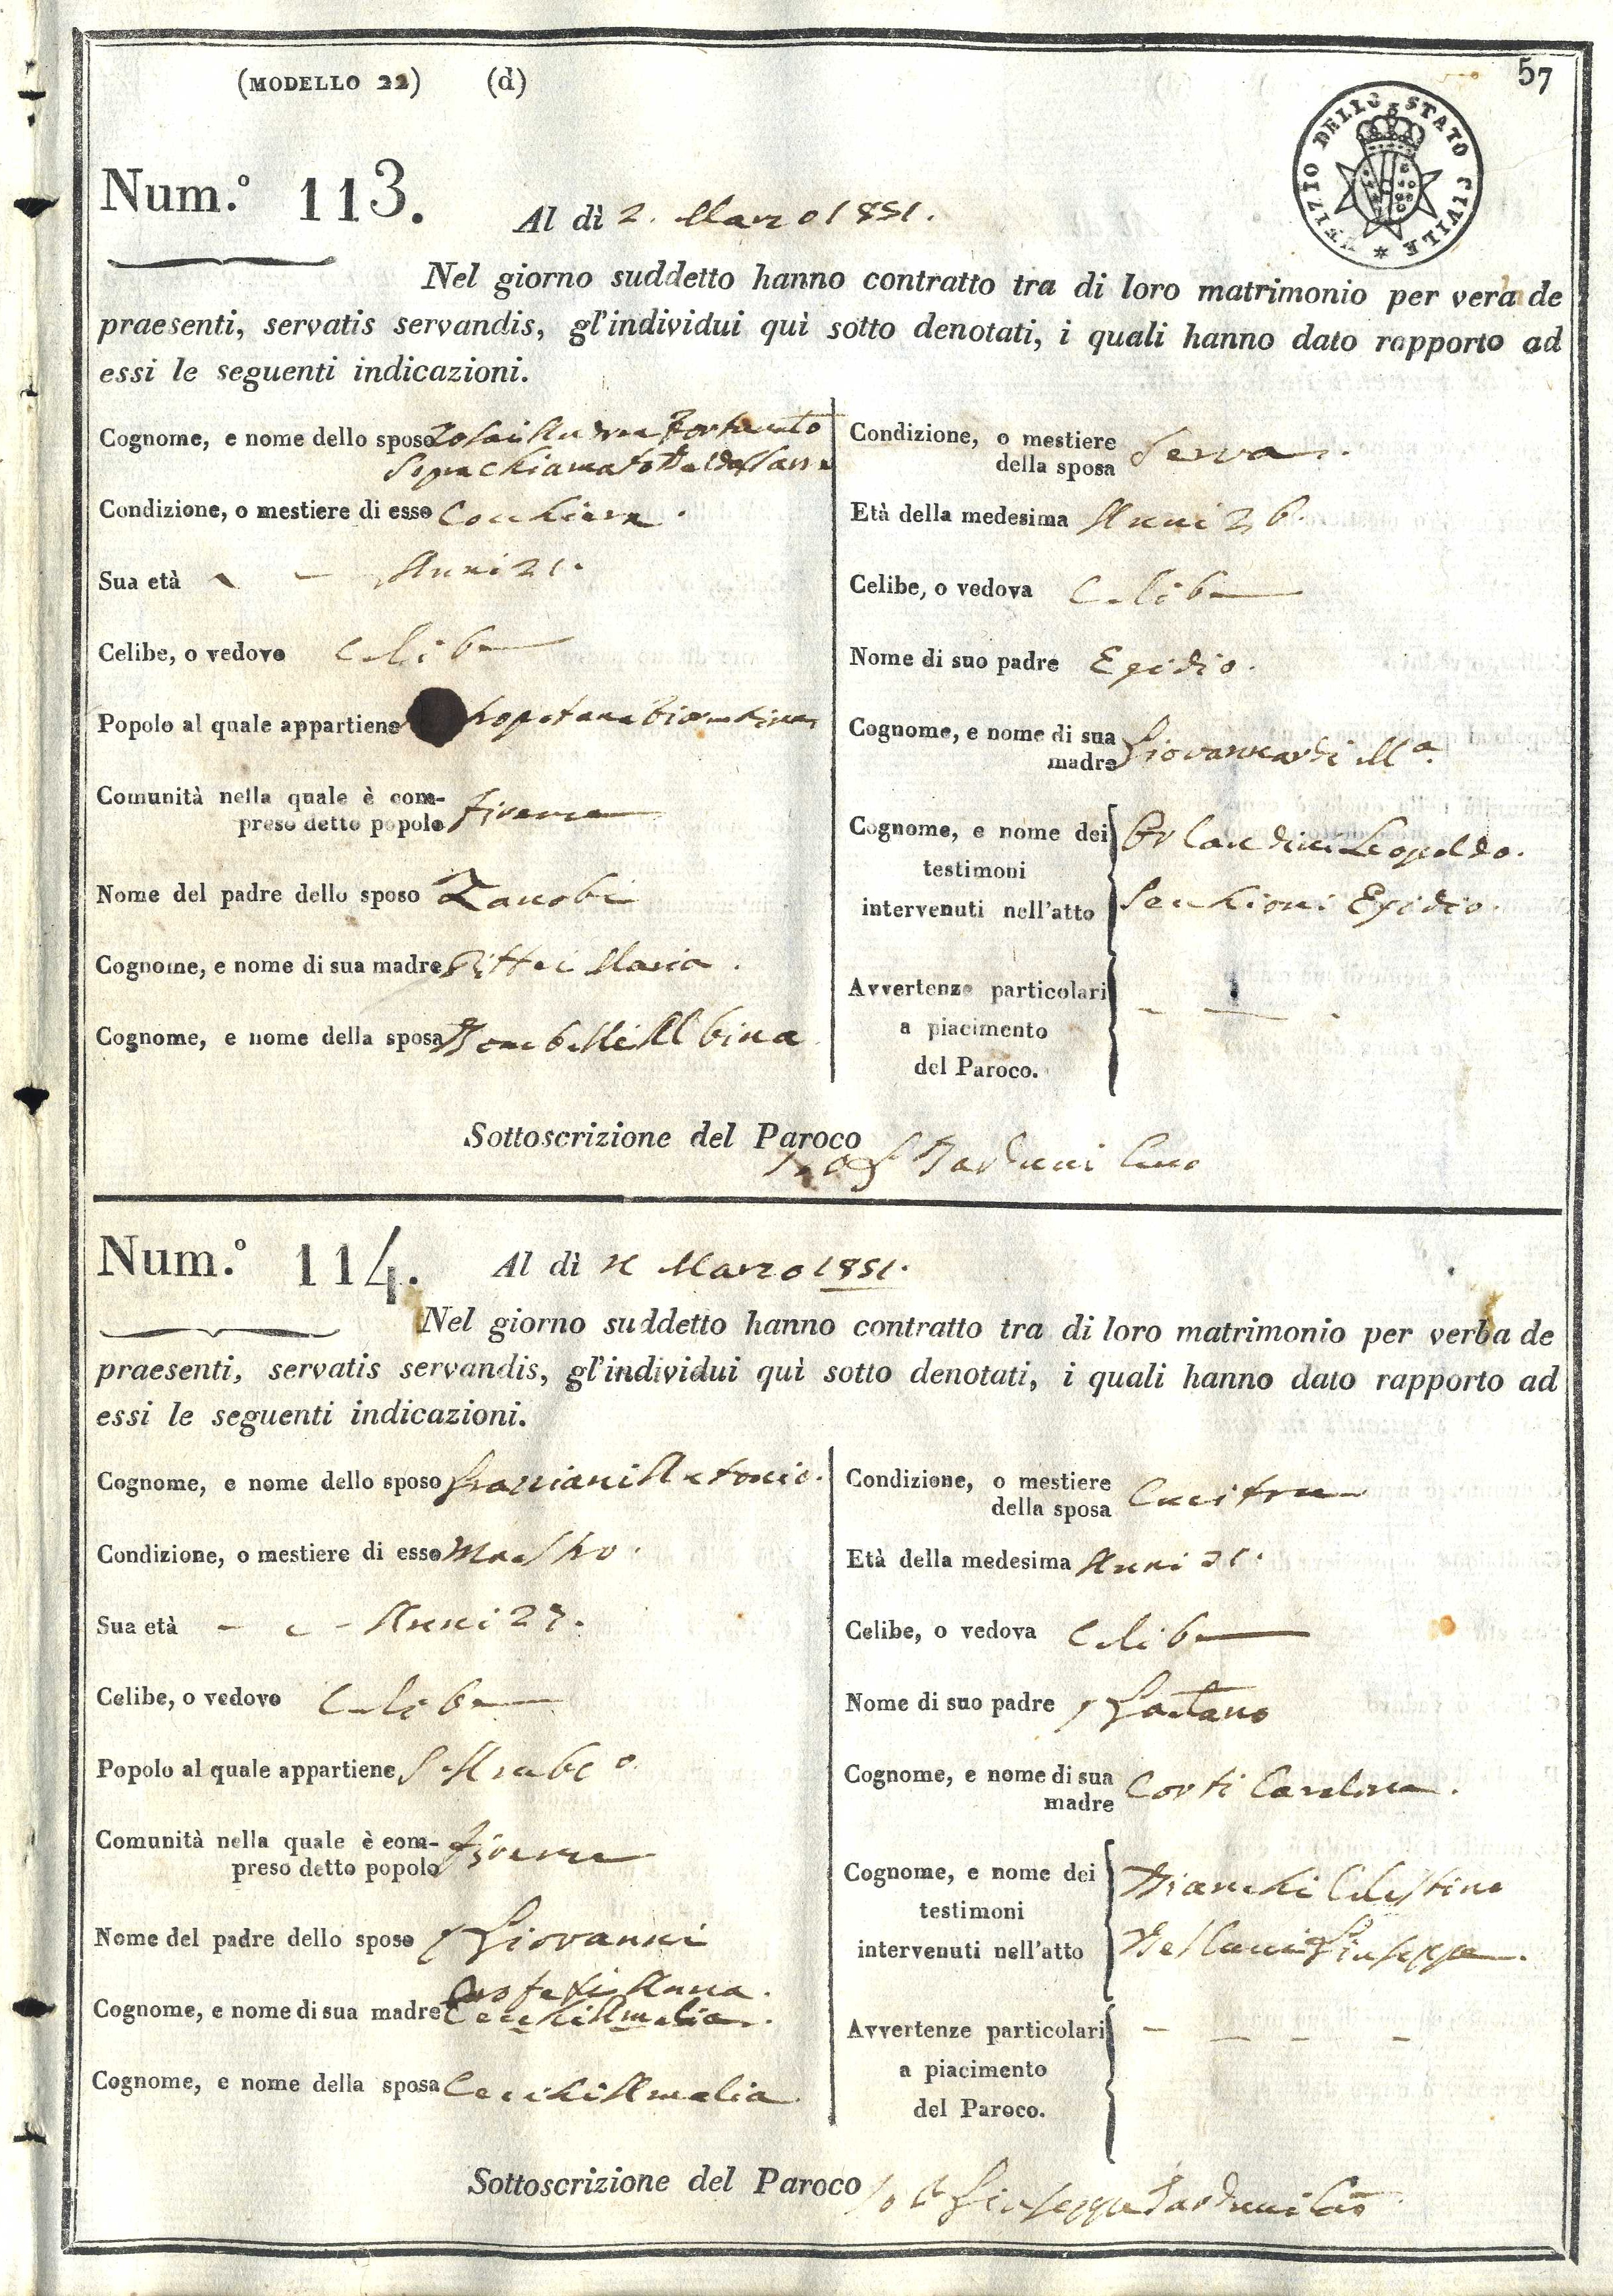 57
(MODELLO 22) (d)
UFIZIO DELLO STATO CIVILE
Num.º 113.
Al dì 2. Marzo 1851.
Nel giorno suddetto hanno contratto tra di loro matrimonio per verba de
praesenti, servatis servandis, gl'individui quì sotto denotati, i quali hanno dato rapporto ad
essi le seguenti indicazioni.
Cognome, e nome dello sposo
Condizione, o mestiere di esso Cocchiere.
Sua età Anni 21.
Celibe, o vedovo Celibe
Popolo al quale appartiene
Comunità nella quale è com-
preso detto popolo Firenze
Nome del padre dello sposo Zanobi
Cognome, e nome di sua madre Maria.
Cognome, e nome della sposa Albina
Condizione, o mestiere
della sposa Serva.
Età della medesima Anni 26.
Celibe, o vedova Celibe
Nome di suo padre Egidio.
Cognome, e nome di sua
madre Giovannardi Mª.
Cognome, e nome dei Orlandini Leopoldo.
testimoni
intervenuti nell'atto Senchioni Egidio.
Avvertenze particolari
a piacimento
del Paroco.
Sottoscrizione del Paroco
Num.º 114.
Al dì Marzo 1851.
Nel giorno suddetto hanno contratto tra di loro matrimonio per verba de
praesenti, servatis servandis, gl'individui quì sotto denotati, i quali hanno dato rapporto ad
essi le seguenti indicazioni.
Cognome, e nome dello sposo Graziani Antonio.
Condizione, o mestiere di esso Maestro.
Sua età Anni 27.
Celibe, o vedovo Celibe
Popolo al quale appartiene
Comunità nella quale è com-
preso detto popolo Firenze
Nome del padre dello sposo Giovanni
Anna.
Cognome, e nome di sua madre Cecchi Amalia.
Cognome, e nome della sposa Cecchi Amalia
Condizione, o mestiere
della sposa Cucitrice
Età della medesima Anni 21.
Celibe, o vedova Celibe
Nome di suo padre Gaetano
Cognome, e nome di sua
madre Corti Carolina.
Cognome, e nome dei Bianchi Celestino
testimoni
intervenuti nell'atto Giuseppe.
Avvertenze particolari
a piacimento
del Paroco.
Sottoscrizione del Paroco Giuseppe